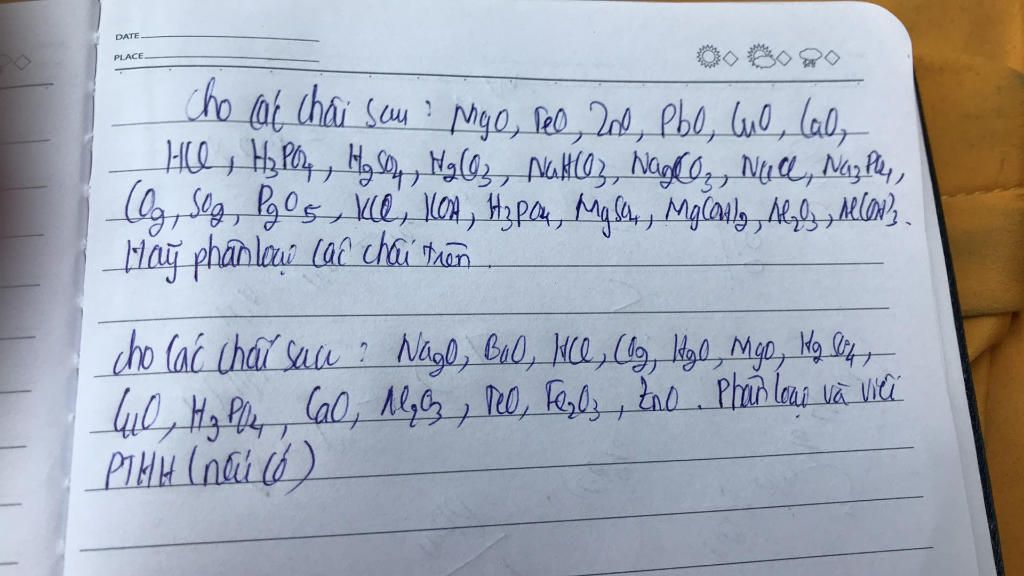 DATE
PLACE
Cho các chất sau : MgO, FeO, ZnO, PbO, CuO, CaO,
HCl, H3PO4, H2SO4, H2CO3, NaHCO3, Na2CO3, NaCl, Na3PO4,
CO2, SO2, P2O5, KCl, KOH, H3PO4, MgSO4, Mg(OH)2, Al2O3, Al(OH)3.
Hãy phân loại các chất trên.
Cho các chất sau : Na2O, BaO, HCl, CO2, H2O, MgO, H2SO4,
CuO, H3PO4, CaO, Al2O3, FeO, Fe2O3, ZnO. Phân loại và viết
PTHH (nếu có)